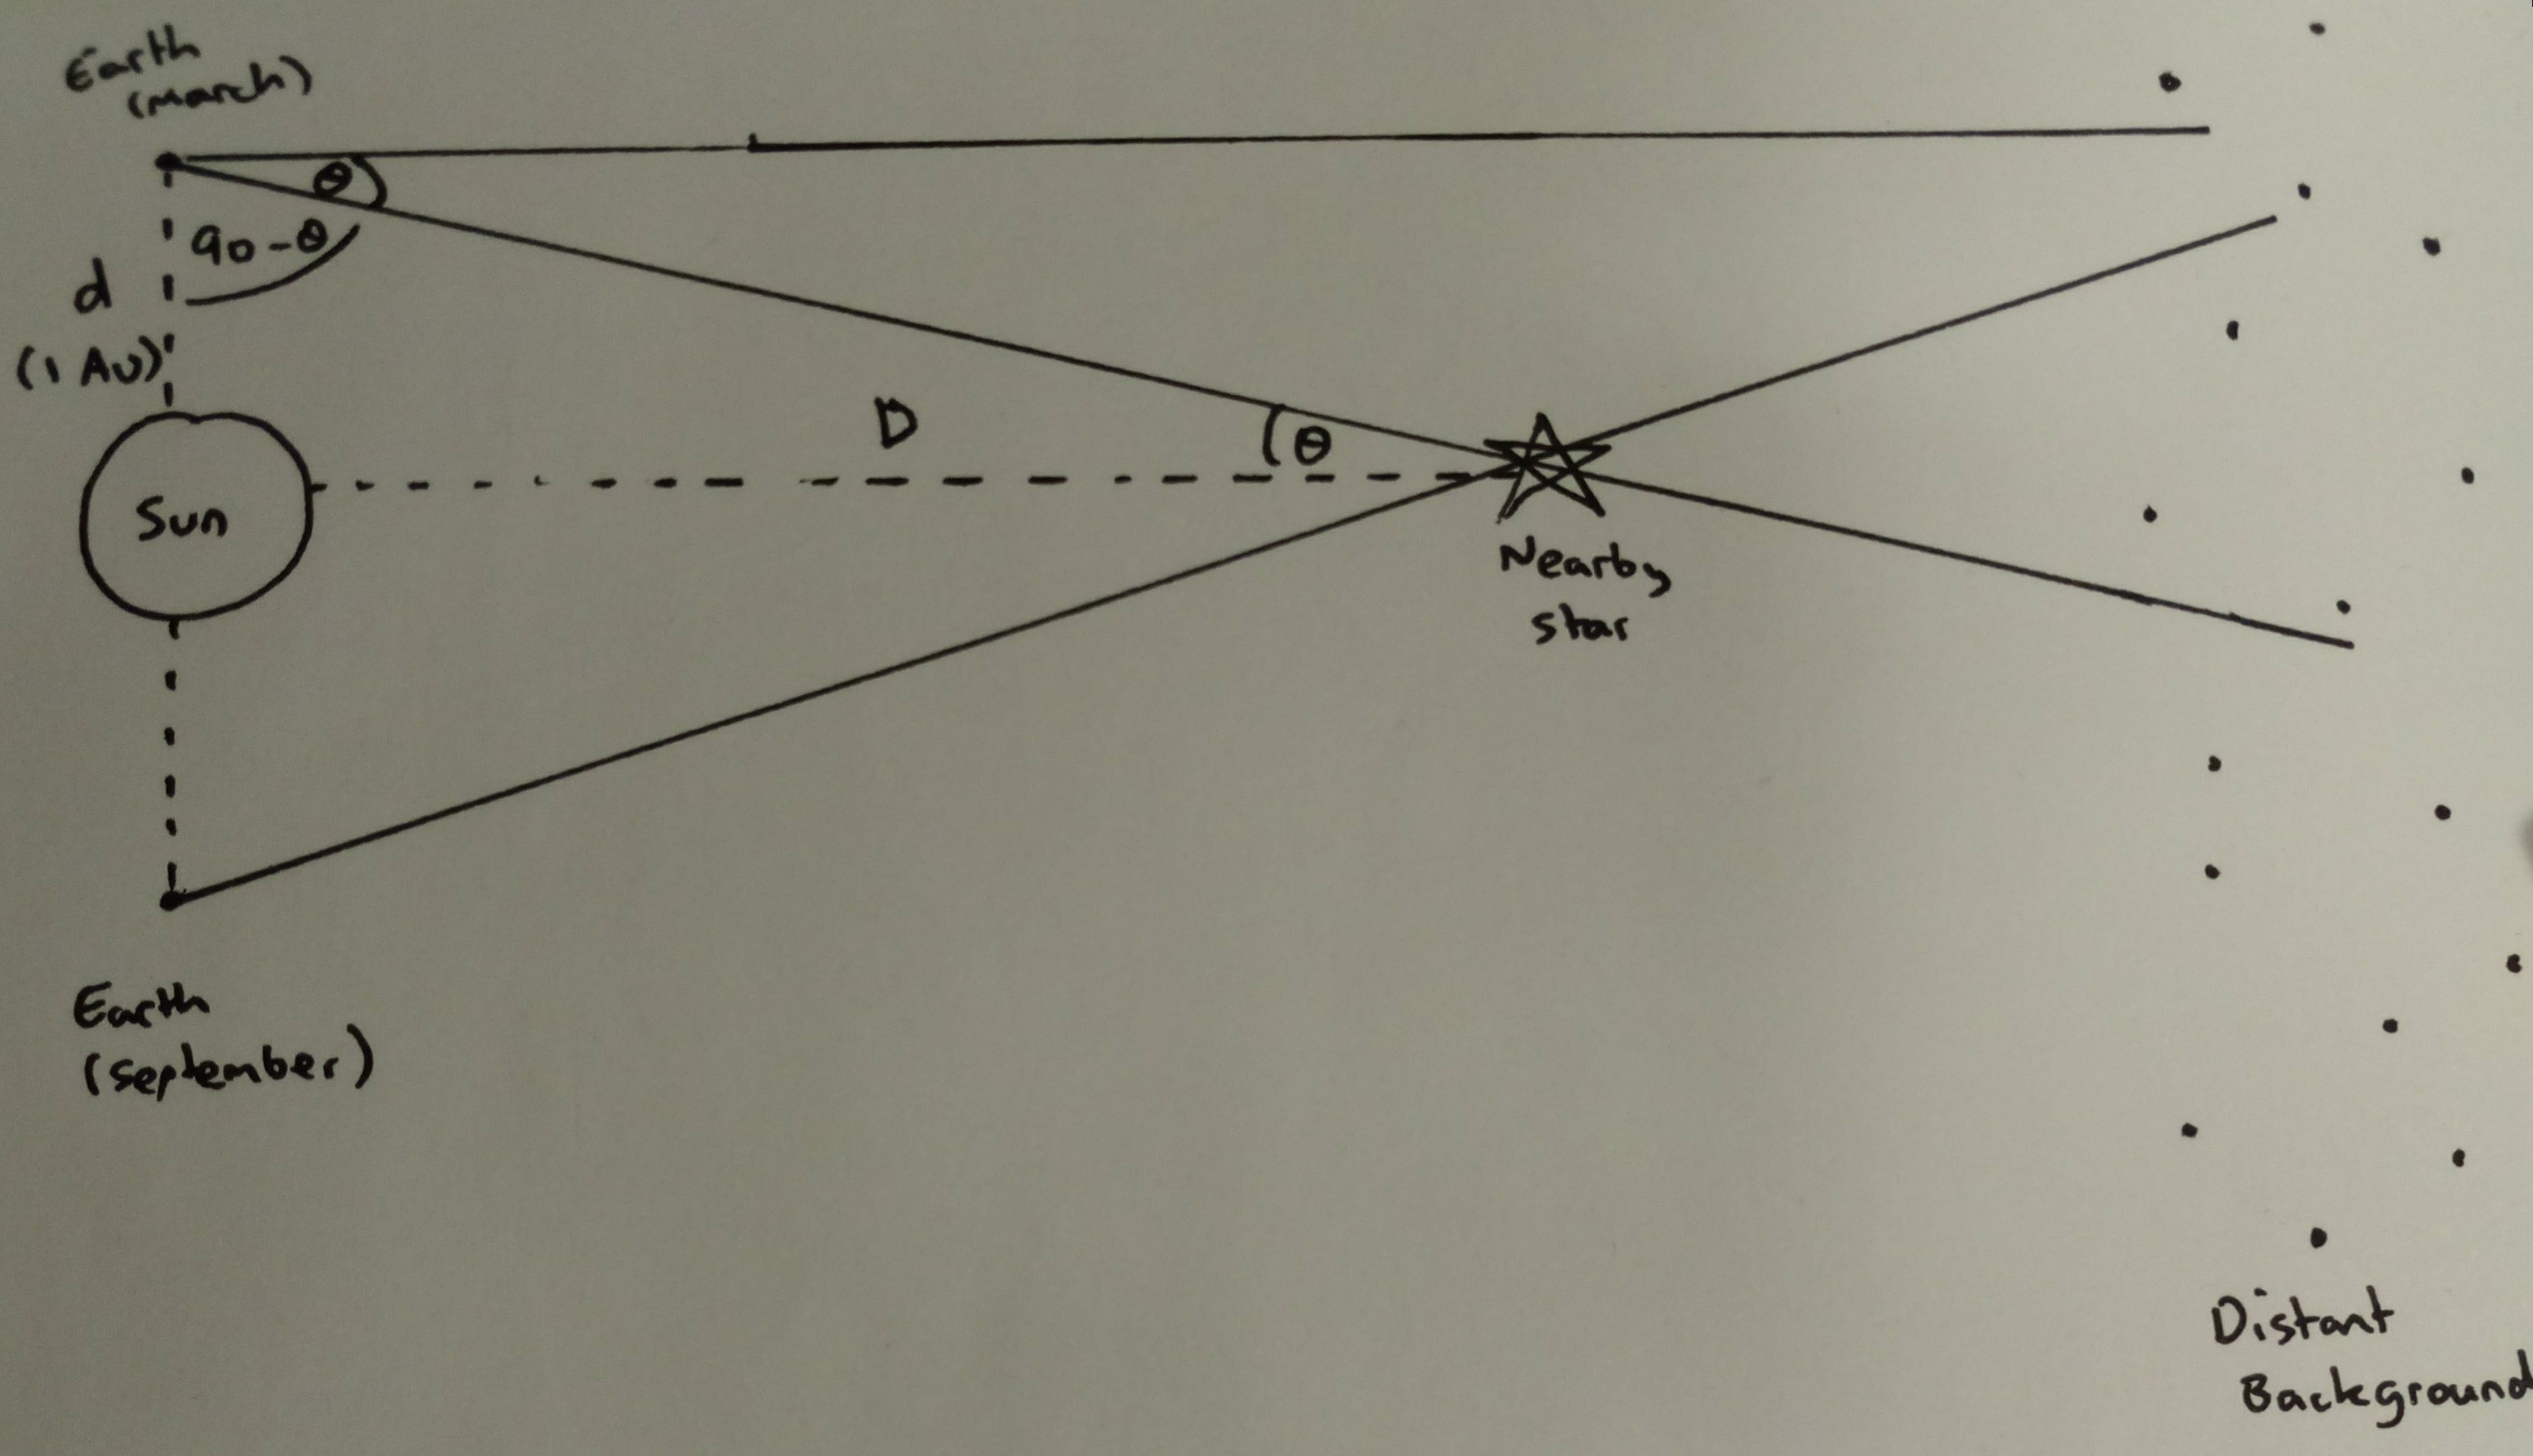 Earth
(March)
θ
90-θ
d
(1 AU)
D
θ
Sun
Nearby
star
Earth
(September)
Distant
Background